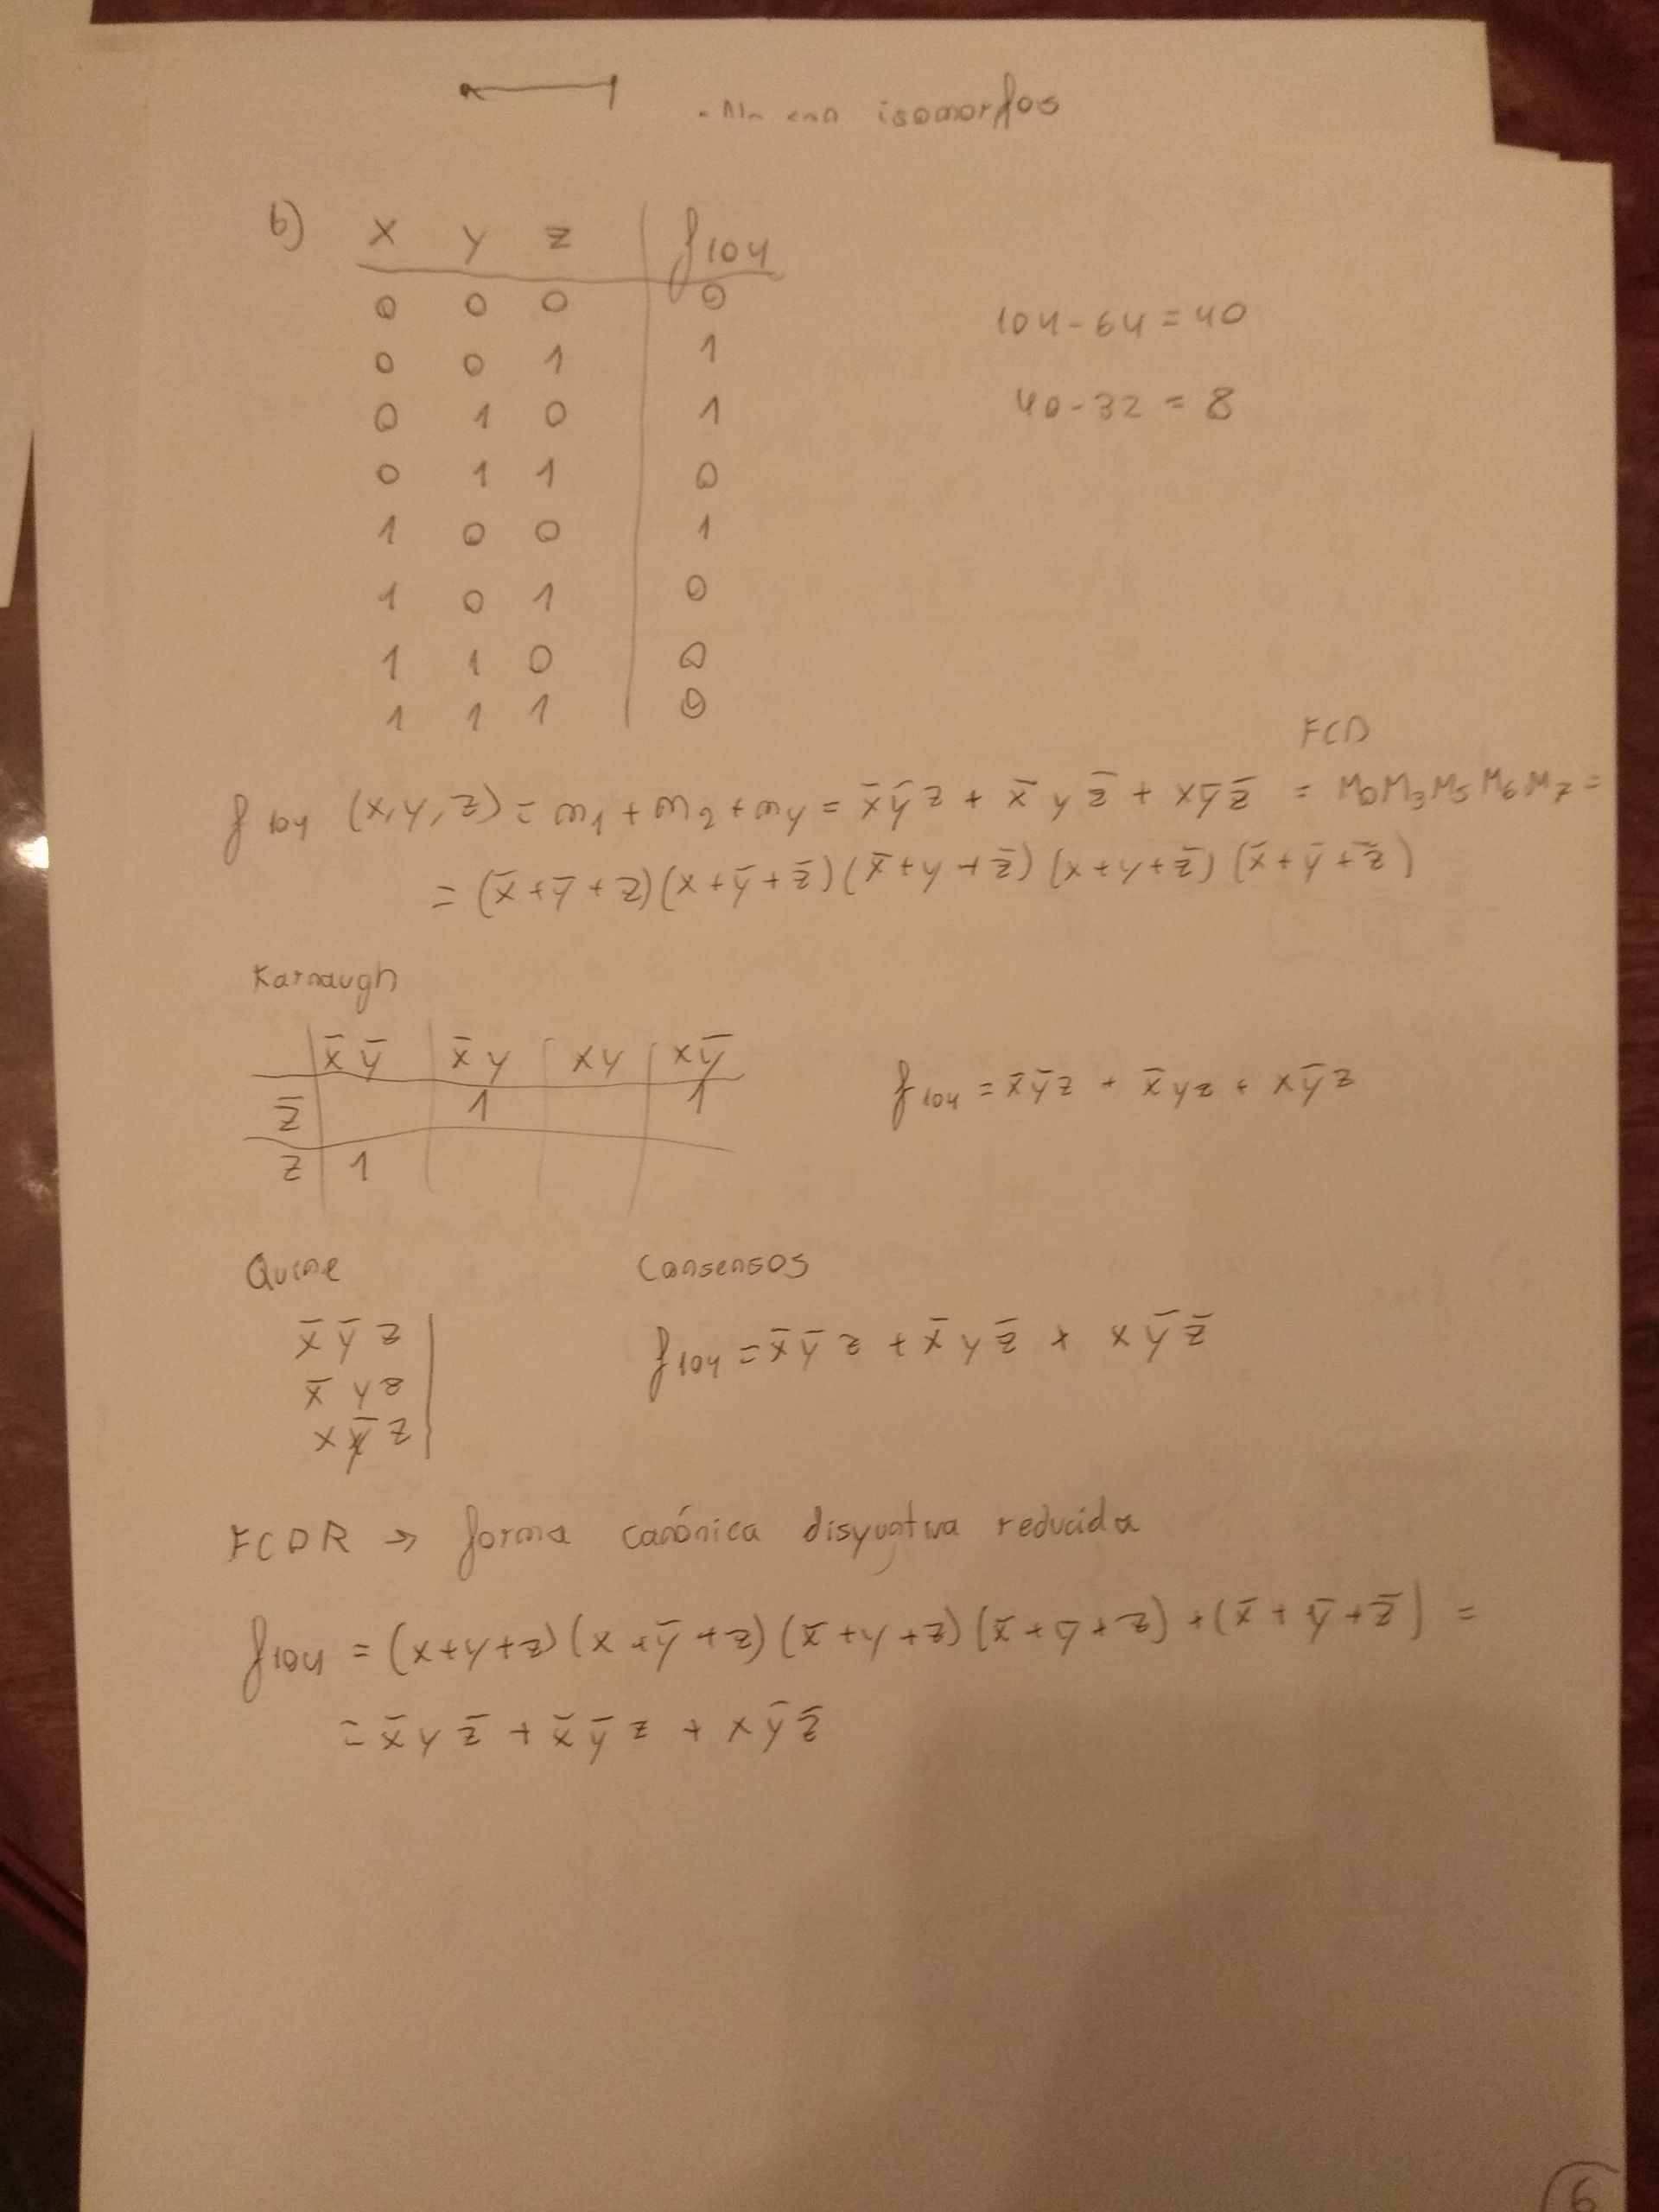 isomorfos
b) x y z f104
0 0 0 0
0 0 1 1
0 1 0 1
0 1 1 0
1 0 0 1
1 0 1 0
1 1 0 0
1 1 1 0
104-64=40
40-32=8
FCD
f104 (x,y,z) = m1 + m2 + m4 = x̄ȳz + x̄yz̄ + xȳz̄ = M0M3M5M6M7 =
= (x̄+ȳ+z)(x+ȳ+z̄)(x̄+y+z̄)(x+y+z̄)(x̄+ȳ+z̄)
Karnaugh
x̄ȳ x̄y xy xȳ
z̄ 1 1
z 1
f104 = x̄ȳz + x̄yz + xȳz
Quine
x̄ȳz
x̄yz
xȳz
Consensos
f104 = x̄ȳz + x̄yz̄ + xȳz̄
FCDR → forma canónica disyuntiva reducida
f104 = (x+y+z)(x+ȳ+z)(x̄+y+z)(x̄+ȳ+z)+(x̄+ȳ+z̄) =
= x̄yz̄ + x̄ȳz + xȳz̄
6